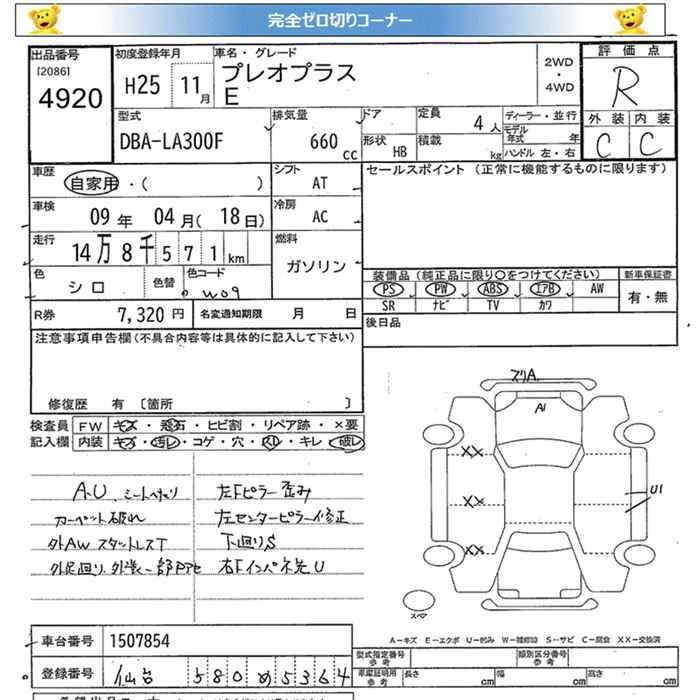 完全ゼロ切りコーナー
出品番号
[2086]
4920
初度登録年月
H25 11月
車名・グレード
プレオプラス
E
2WD
・
4WD
評価点
R
外装 内装
C C
型式
DBA-LA300F
排気量
660 cc
ドア
形状
HB
定員
4 人
積載
kg
ディーラー・並行
モデル年式 年
ハンドル 左・右
車歴
自家用・( )
シフト
AT
車検
09年 04月(18日)
冷房
AC
走行
14万8千571 km
燃料
ガソリン
色
シロ
色替
色コード
W09
セールスポイント (正常に機能するものに限ります)
装備品 (純正品に限り○をつけてください)
新車保証書
PS PW ABS エアB AW
有・無
SR ナビ TV カワ
後日品
R券
7,320 円
名変通知期限 月 日
注意事項申告欄(不具合内容等は具体的に記入して下さい)
修復歴 有 〔箇所 〕
検査員
記入欄
FW キズ・飛石・ヒビ割・リペア跡・×要
内装 キズ・汚レ・コゲ・穴・スレ・キレ・破レ
A.U、シートヘタリ
カーペット破れ
外AW スタッドレスT
左Fピラー歪み
左センターピラー修正
下廻りS
右Fインパネ先U
スリA
A1
XX
XX
XX
U1
スペア
A-キズ E-エクボ U-凹み W-補修跡 S-サビ C-腐食 XX-交換済
車台番号
1507854
登録番号
仙台 580 め 5364
型式指定番号
参考
類別区分番号
参考
車庫証明用
参考
長さ cm
幅 cm
高さ cm